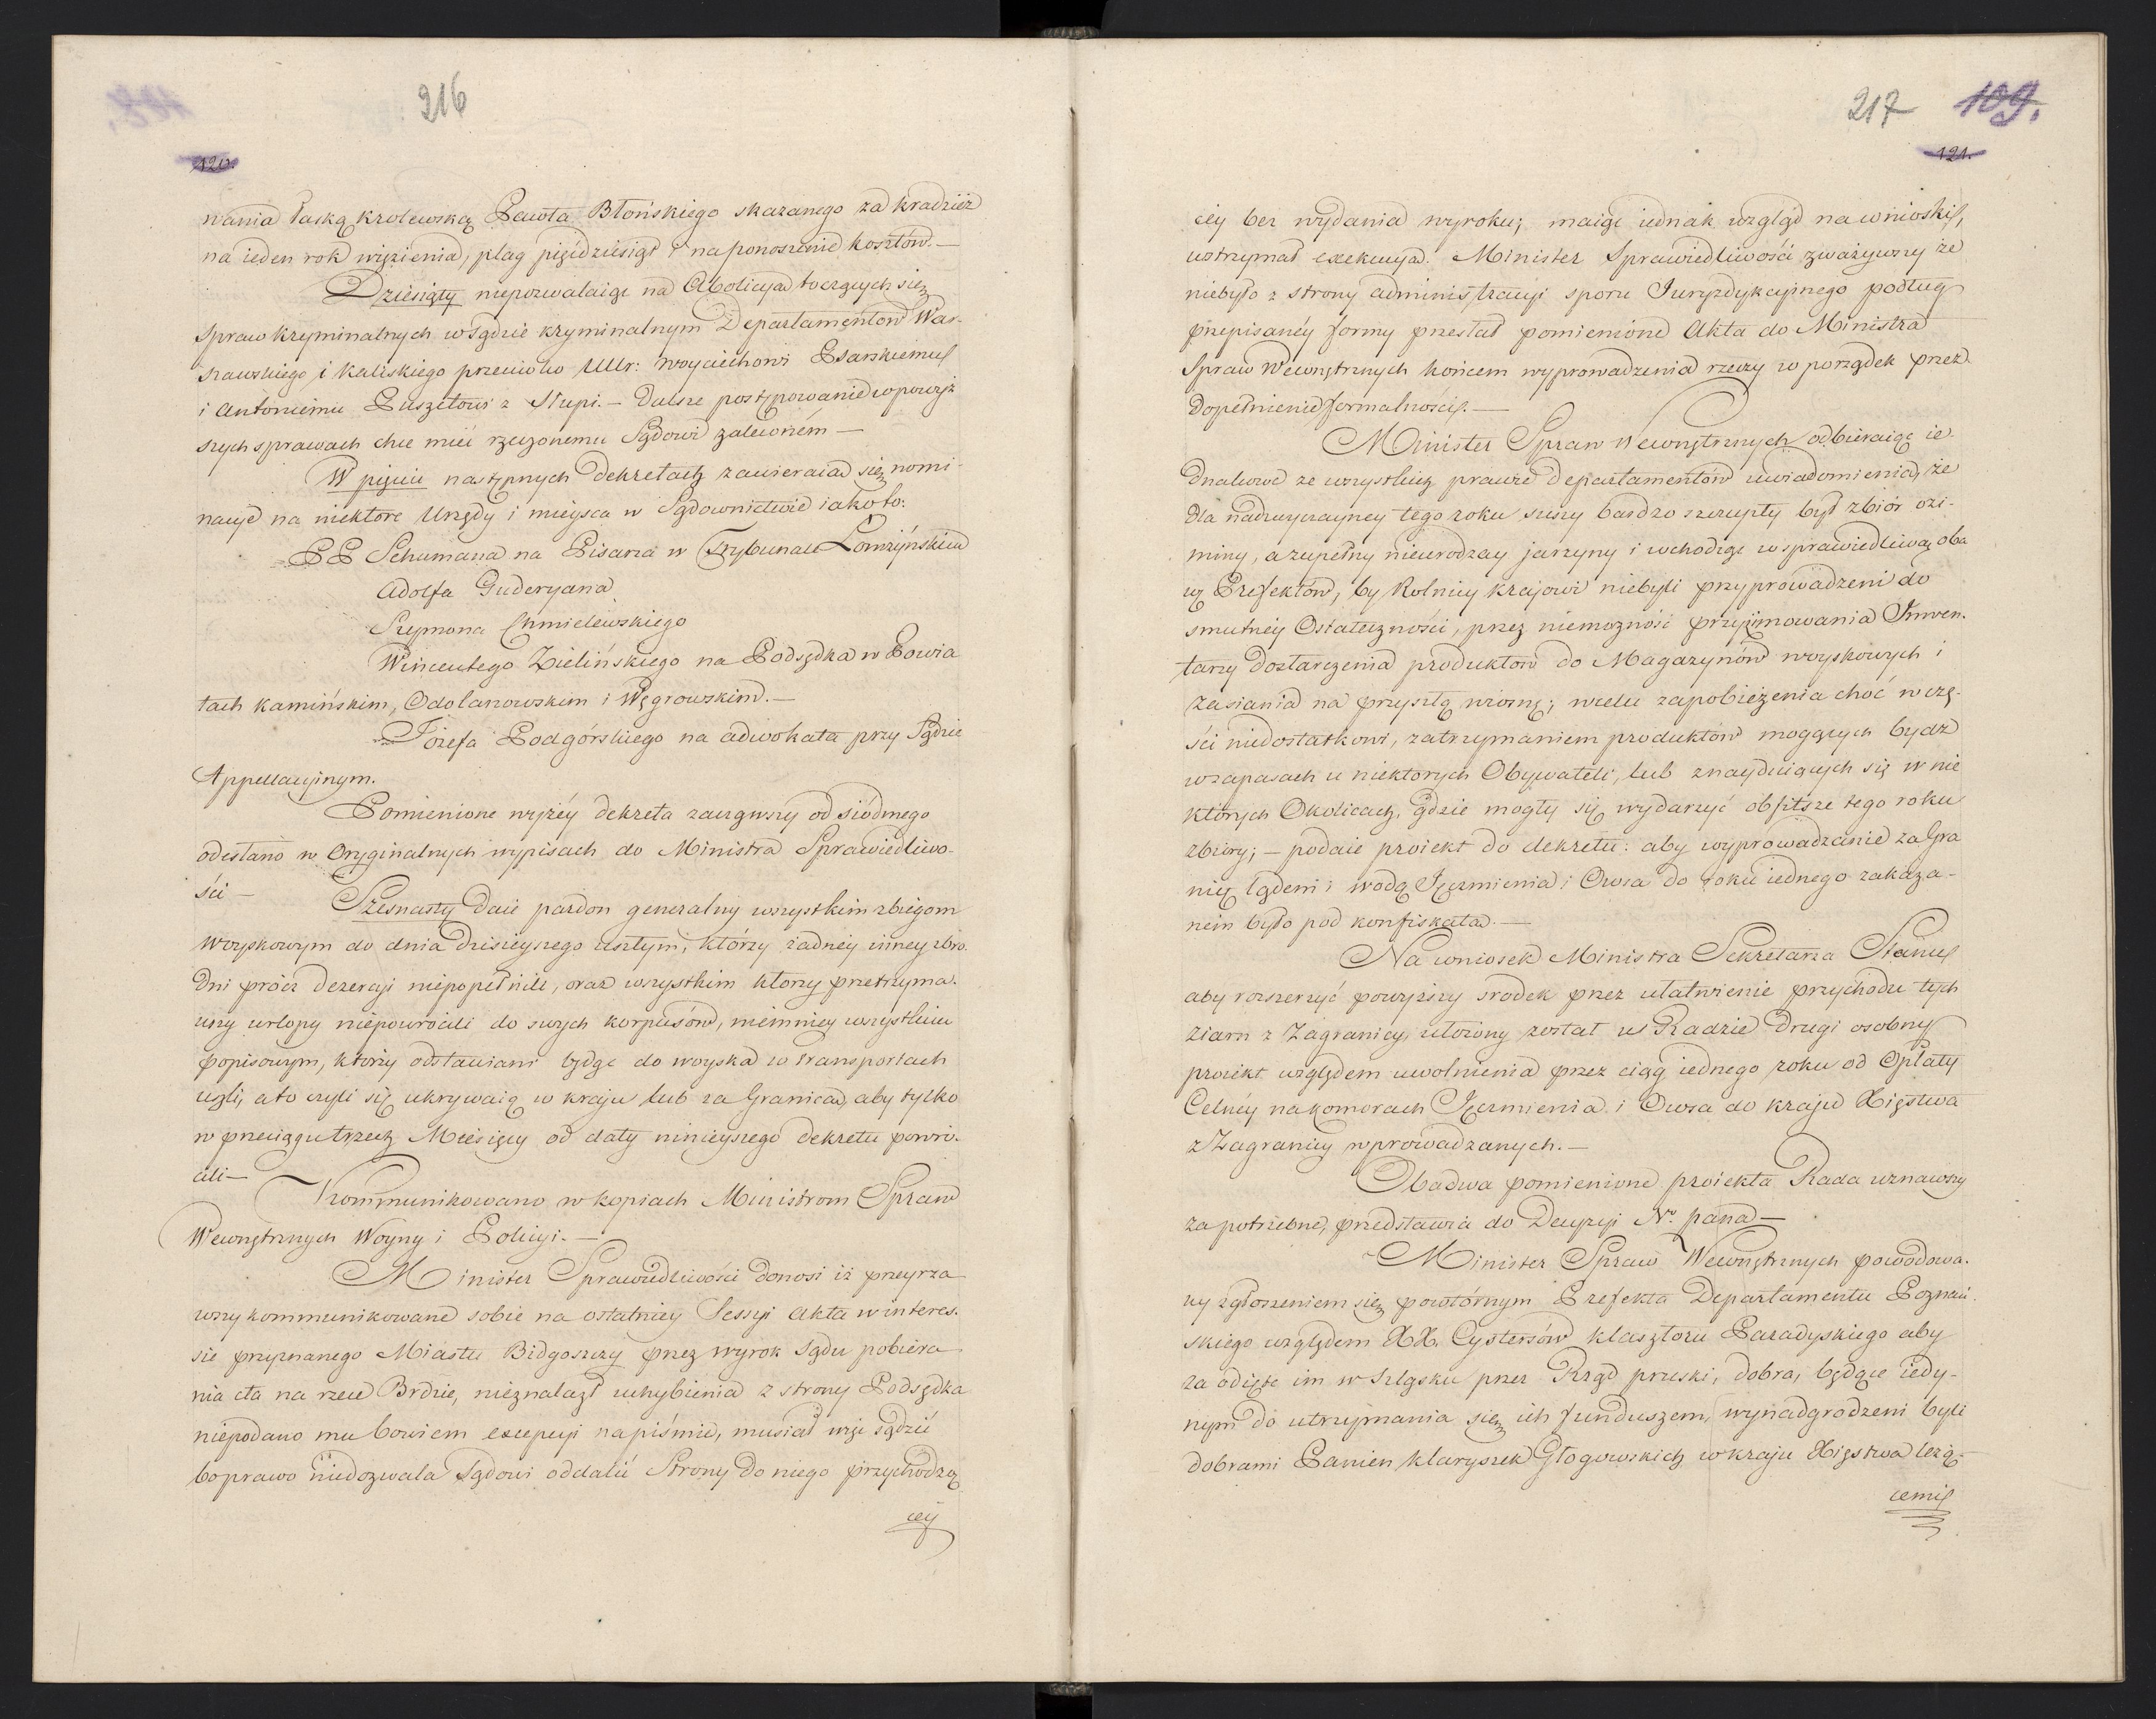 216
120.
wania łaską krolewską Pawła Błońskiego skazanego za kradzież
na ieden rok więzienia, plag pięćdziesiąt i na ponoszenie kosztów.—
Dziesiąty niepozwalaiąc na Abolicyą toczących się
spraw kryminalnych w Sądzie kryminalnym Departamentow War-
szawskiego i Kaliskiego przeciwko Ur: Woyciechowi Psarskiemu
i Antoniemu Puszetowi z Słupi.— Dalsze postępowanie w powyż
szych sprawach chce mieć rzeczonemu Sądowi zaleconém—
W pięciu następnych Dekretach zawieraią się nomi-
nacye na niektore Urzędy i mieysca w Sądownictwie iako to:
PP Schumana na Pisarza w Trybunale Łomżyńskim
Adolfa Guderyana
Szymona Chmielewskiego
Wincentego Zielińskiego na Podsędka w Powia
tach Kamińskim, Odolanowskim i Węgrowskim.—
Józefa Podgórskiego na adwokata przy Sądzie
Appellacyinym.
Pomienione wyżéy dekreta zacząwszy od siódmego
odesłano w Oryginalnych wypisach do Ministra Sprawiedliwo-
ści—
Szesnasty daie pardon generalny wszystkim zbiegom
woyskowym do dnia dzisieyszego uszłym, którzy żadnéy inney zbro-
dni prócz dezercyi niepopełnili, oraz wszystkim ktorzy przetrzyma-
wszy urlopy niepowrócili do swych korpusów, niemniey wszystkim
popisowym, którzy odstawiani będąc do woyska w transportach
uszli, a to czyli się ukrywaią w kraju lub za Granicą, aby tylko
w przeciągu trzech Miesięcy od daty ninieyszego dekretu powró-
cili—
Kommunikowano w kopiach Ministrom Spraw
Wewnętrznych Woyny i Policyi.—
Minister Sprawiedliwości donosi iż przeyrza
wszy kommunikowane sobie na ostatniey Sessyi Akta w interes-
sie przyznanego Miastu Bidgoszczy przez wyrok Sądu pobiera
nia cła na rzece Brdzie, nieznalazł uchybienia z strony Podsędka
niepodano mu bowiem excepcyi na piśmie, musiał więc sądzić
bo prawo niedozwala Sądowi oddalić Strony do niego przychodzą
céy
217 109.
121.
céy bez wydania wyroku; maiąc iednak wzgląd na wnioski,
wstrzymał exekucyą. Minister Sprawiedliwości zważywszy że
niebyło z strony administracyi sporu Juryzdykcyinego podług
przepisanéy formy przesłał pomienione Akta do Ministra
Spraw Wewnętrznych końcem wyprowadzenia rzeczy w porządek przez
dopełnienie formalności.—
Minister Spraw Wewnętrznych odbieraiąc ie-
dnakowe ze wszystkich prawie Departamentów uwiadomienia, że
dla nadzwyczayney tego roku suszy bardzo szczupły był zbiór ozi-
miny, a zupełny nieurodzay jarzyny i wchodząc w sprawiedliwą oba
wę Prefektów, by Rolnicy krajowi niebyli przyprowadzeni do
smutnéy Ostateczności, przez niemożność przezimowania Inwen-
tarzy dostarczenia produktow do Magazynów woyskowych i
zasiania na przyszłą wiosnę; w celu zapobieżenia choć w czę-
ści niedostatkowi, zatrzymaniem produktów mogących bydź
w zapasach u niektorych Obywateli, lub znayduiących się w nie
których Okolicach, gdzie mogły się wydarzyć obfitsze tego roku
zbiory;— podaie proiekt do dekretu: aby wyprowadzanie za Gra
nicę lądem i wodą Jęczmienia i Owsa do roku iednego zakaza-
nem było pod konfiskatą.—
Na wniosek Ministra Sekretarza Stanu
aby rozszerzyć powyższy srodek przez ułatwienie przychodu tych
ziarn z Zagranicy, ułożony został w Radzie drugi osobny
proiekt względem uwolnienia przez ciąg iednego roku od Opłaty
Celnéy na komorach Jęczmienia i Owsa do kraju Xięstwa
z Zagranicy wprowadzanych.—
Obadwa pomienione proiekta Rada uznawszy
za potrzebne, przedstawia do Decyzyi N. Pana—
Minister Spraw Wewnętrznych powodowa-
ny zgłoszeniem się powtórnym Prefekta Departamentu Poznań-
skiego względem XX. Cystersów klasztoru Paradyskiego aby
za odięte im w Szląsku przez Rząd pruski, dobra, będące iedy-
nym do utrzymania się ich funduszem, wynadgrodzeni byli
dobrami Panien Klaryssek Głogowskich w kraju Xięstwa leżą-
cemi